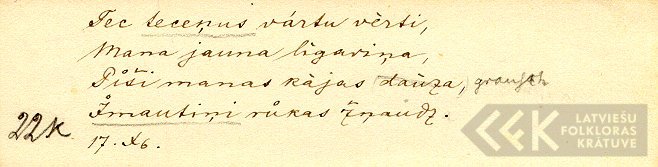 Tec teceņus vārtu vērti,
Mana jauna līgaviņa,
Pīši manas kājas dauza,
Īmautiņi rūkas žņaudz.
22k
17. X6.
LATVIEŠU
FOLKLORAS
KRĀTUVE